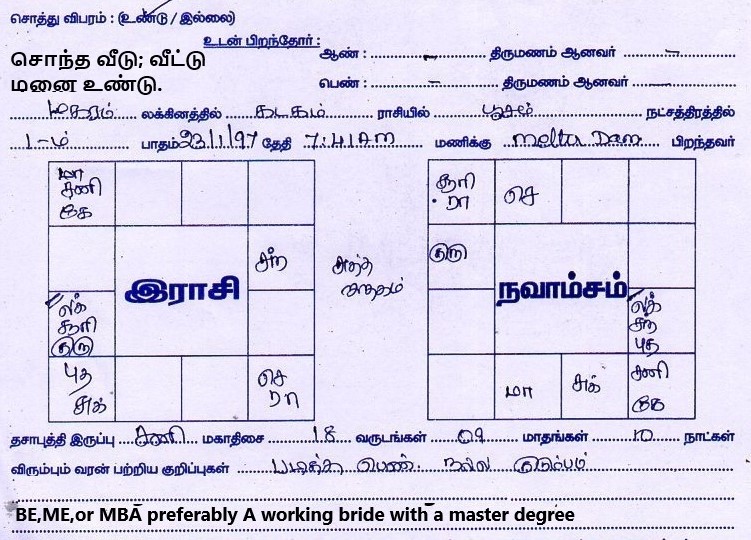 சொத்து விபரம் : (உண்டு / இல்லை)
உடன் பிறந்தோர் :
சொந்த வீடு; வீட்டு
மனை உண்டு.
ஆண் : - திருமணம் ஆனவர் -
பெண் : - திருமணம் ஆனவர் -
மகரம் லக்கினத்தில் கடகம் ராசியில் பூசம் நட்சத்திரத்தில்
1-ம் பாதம் 23/1/97 தேதி 7:41 AM மணிக்கு Mettur Dam பிறந்தவர்
மா
சனி
கே
சந்
இராசி
லக்
சூரி
குரு
புத
சுக்
செ
ரா
சூரி
ரா
செ
குரு
நவாம்சம்
லக்
சந்
புத
மா
சுக்
சனி
கே
தசாபுத்தி இருப்பு சனி மகாதிசை 18 வருடங்கள் 09 மாதங்கள் 10 நாட்கள்
விரும்பும் வரன் பற்றிய குறிப்புகள் படித்த பெண். நல்ல குடும்பம்
BE,ME,or MBA preferably A working bride with a master degree